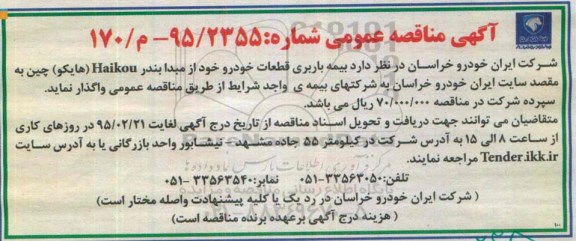 آگهی مناقصه عمومی شماره:۹۵/۲۳۵۵- م/۱۷۰
شرکت ایران خودرو خراسان در نظر دارد بیمه باربری قطعات خودرو خود از مبدا بندر Haikou (هایکو) چین به
مقصد سایت ایران خودرو خراسان به شرکتهای بیمه ی واجد شرایط از طریق مناقصه عمومی واگذار نماید.
سپرده شرکت در مناقصه ۷۰/۰۰۰/۰۰۰ ریال می باشد.
متقاضیان می توانند جهت دریافت و تحویل اسناد مناقصه از تاریخ درج آگهی لغایت ۹۵/۰۲/۲۱ در روزهای کاری
از ساعت ۸ الی ۱۵ به آدرس شرکت در کیلومتر ۵۵ جاده مشهد- نیشابور واحد بازرگانی یا به آدرس سایت
Tender.ikk.ir مراجعه نمایند.
تلفن:۳۳۵۶۳۰۵۰-۰۵۱ نمابر:۳۳۵۶۳۵۴۰-۰۵۱
( شرکت ایران خودرو خراسان در رد یک یا کلیه پیشنهادات واصله مختار است )
( هزینه درج آگهی برعهده برنده مناقصه است )